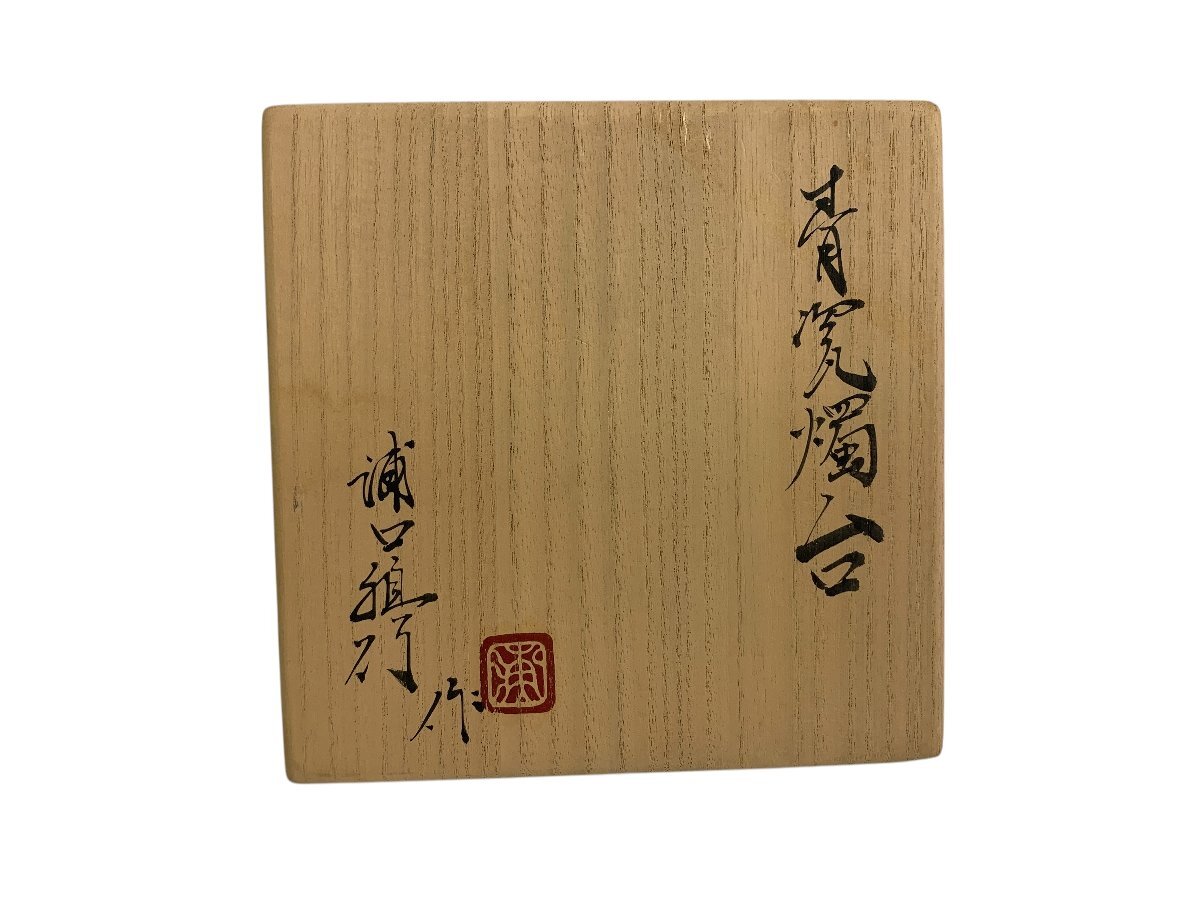 青瓷燭台
浦口雅行 作
浦